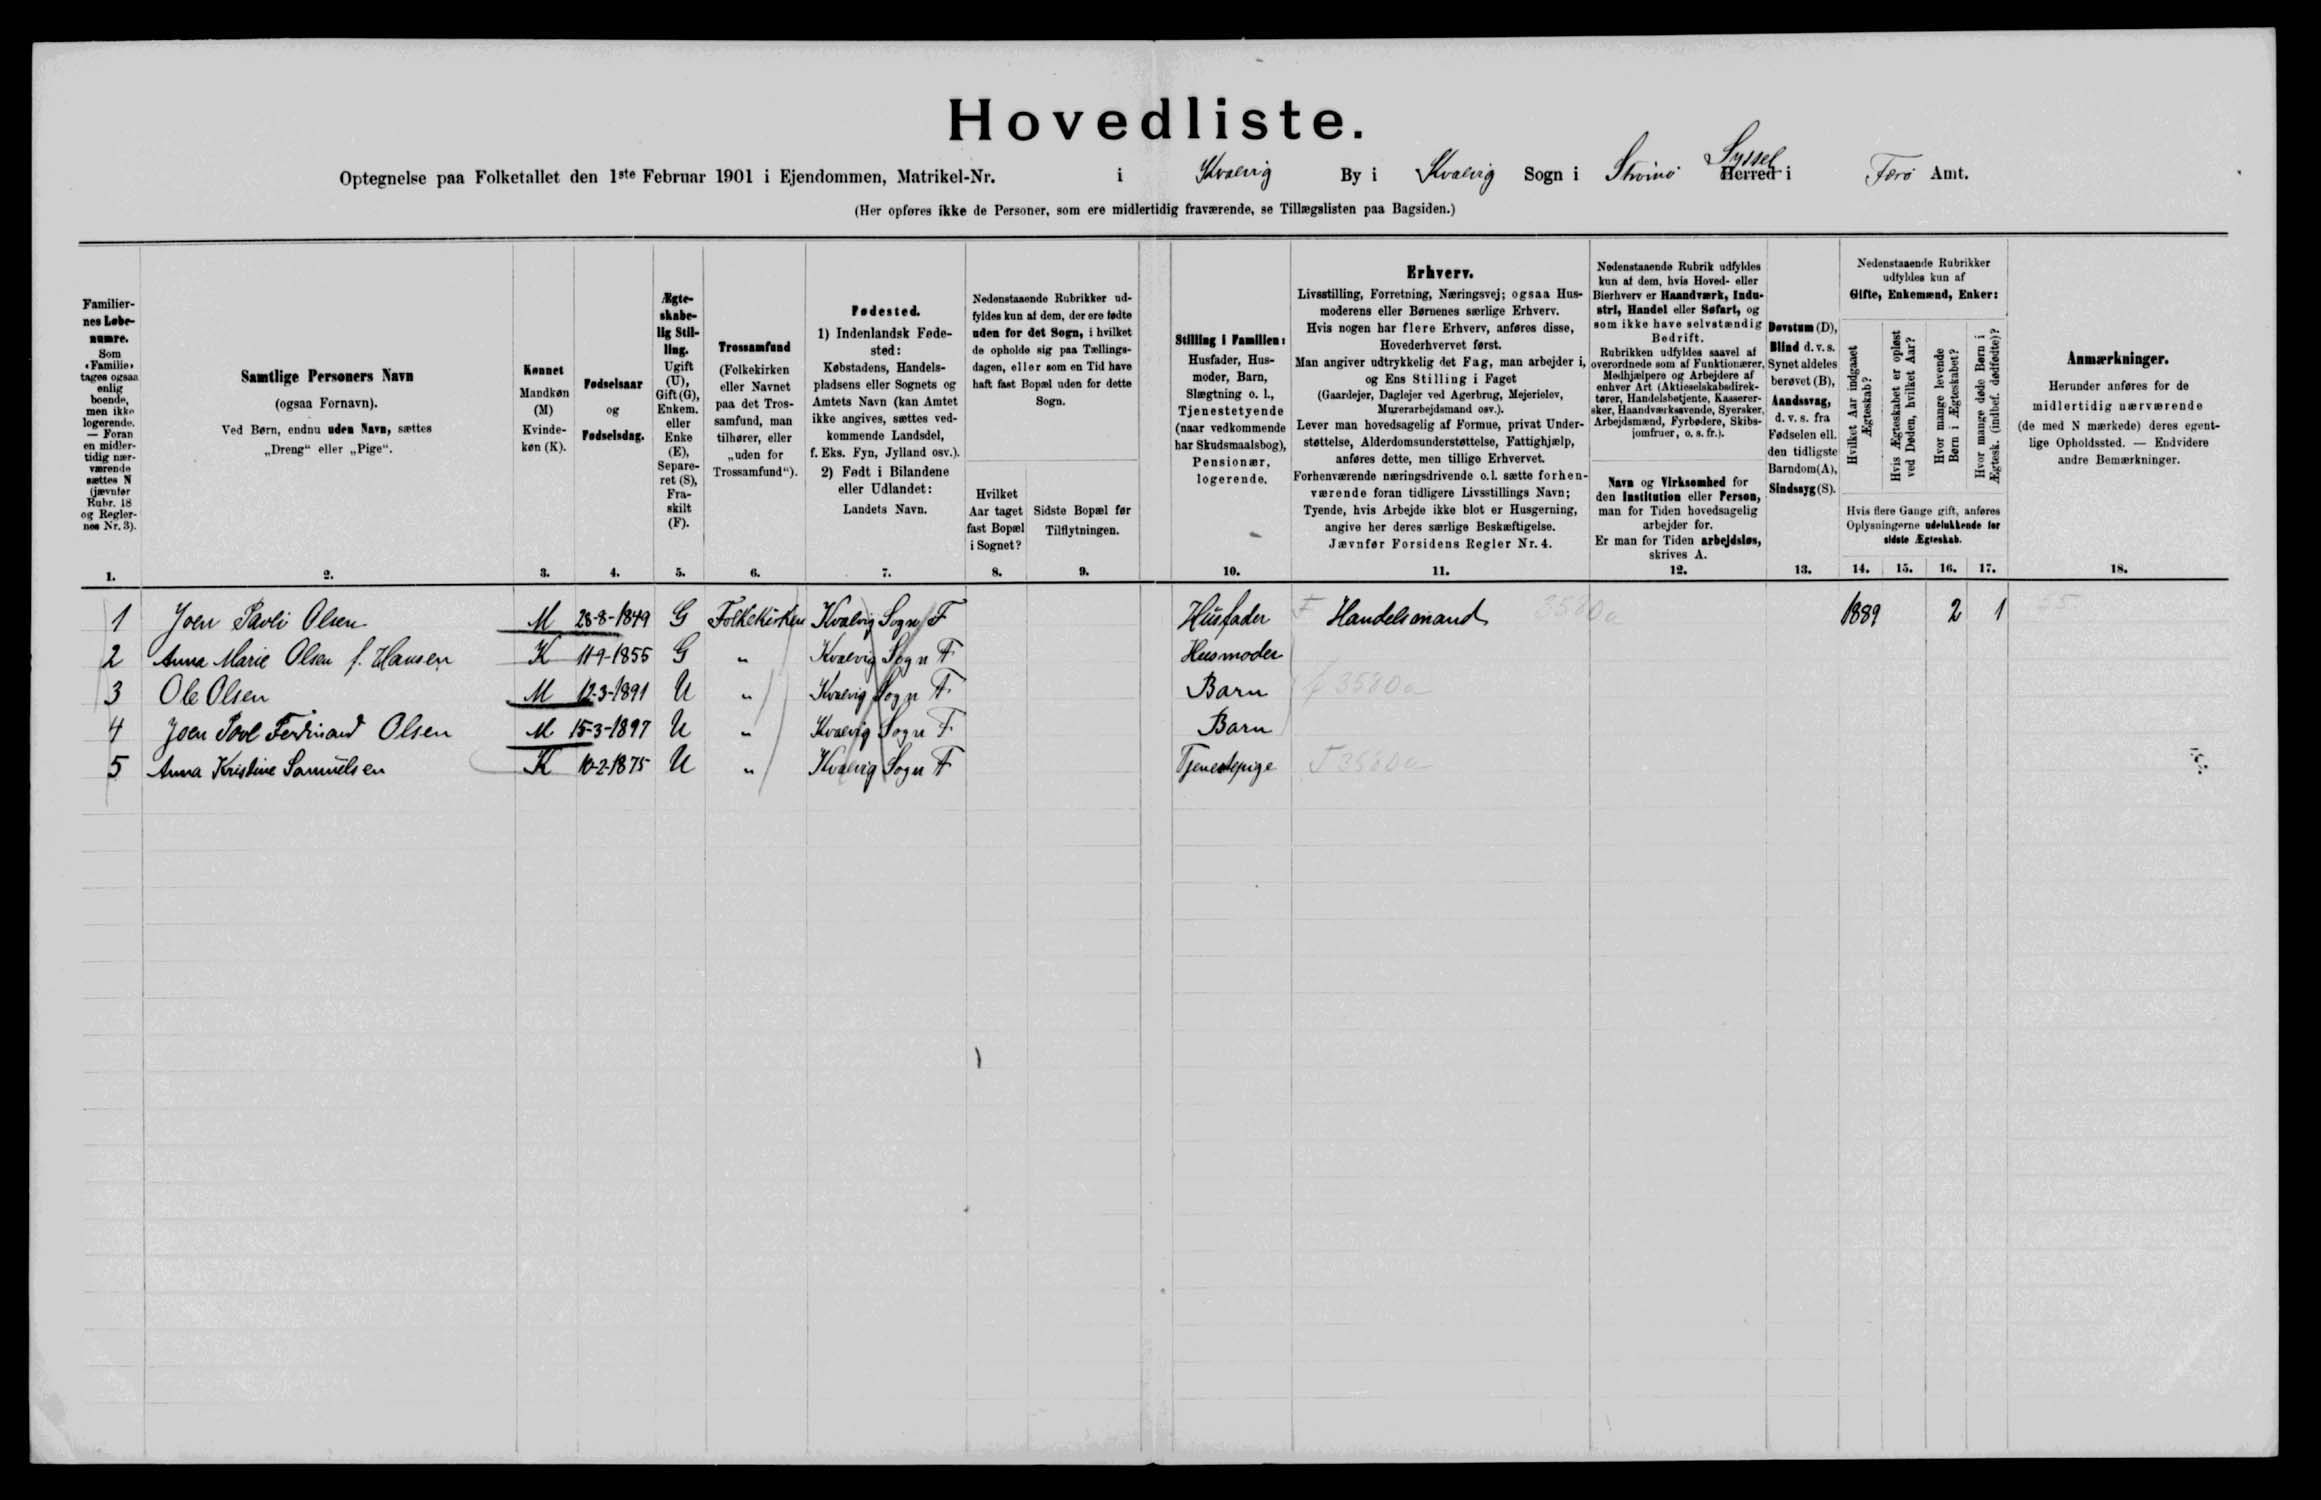 Hovedliste.
Optegnelse paa Folketallet den 1ste Februar 1901 i Ejendommen, Matrikel-Nr. i Kvalvig By i Kvalvig Sogn i Strømø Syssel Herred i Færø Amt.
(Her opføres ikke de Personer, som ere midlertidig fraværende, se Tillægslisten paa Bagsiden.)
Familier-
nes Løbe-
numre.
Som
«Familie»
tages ogsaa
enlig
boende,
men ikke
logerende.
— Foran
en midler-
tidig nær-
værende
sættes N
(jævnfør
Rubr. 18
og Regler-
nes Nr. 3).
1.
Samtlige Personers Navn
(ogsaa Fornavn).
Ved Børn, endnu uden Navn, sættes
„Dreng“ eller „Pige“.
2.
Kønnet
Mandkøn
(M)
Kvinde-
køn (K).
3.
Fødselsaar
og
Fødselsdag.
4.
Ægte-
skabe-
lig Stil-
ling.
Ugift
(U),
Gift (G),
Enkem.
eller
Enke
(E),
Separe-
ret (S),
Fra-
skilt
(F).
5.
Trossamfund
(Folkekirken
eller Navnet
paa det Tros-
samfund, man
tilhører, eller
„uden for
Trossamfund“).
6.
Fødested.
1) Indenlandsk Føde-
sted:
Købstadens, Handels-
pladsens eller Sognets og
Amtets Navn (kan Amtet
ikke angives, sættes ved-
kommende Landsdel,
f. Eks. Fyn, Jylland osv.).
2) Født i Bilandene
eller Udlandet:
Landets Navn.
7.
Nedenstaaende Rubrikker ud-
fyldes kun af dem, der ere fødte
uden for det Sogn, i hvilket
de opholde sig paa Tællings-
dagen, eller som en Tid have
haft fast Bopæl uden for dette
Sogn.
Hvilket
Aar taget
fast Bopæl
i Sognet?
8.
Sidste Bopæl før
Tilflytningen.
9.
Stilling i Familien:
Husfader, Hus-
moder, Barn,
Slægtning o. l.,
Tjenestetyende
(naar vedkommende
har Skudsmaalsbog),
Pensionær,
logerende.
10.
Erhverv.
Livsstilling, Forretning, Næringsvej; ogsaa Hus-
moderens eller Børnenes særlige Erhverv.
Hvis nogen har flere Erhverv, anføres disse,
Hovederhvervet først.
Man angiver udtrykkelig det Fag, man arbejder i,
og Ens Stilling i Faget
(Gaardejer, Daglejer ved Agerbrug, Mejerielev,
Murerarbejdsmand osv.).
Lever man hovedsagelig af Formue, privat Under-
støttelse, Alderdomsunderstøttelse, Fattighjælp,
anføres dette, men tillige Erhvervet.
Forhenværende næringsdrivende o. l. sætte forhen-
værende foran tidligere Livsstillings Navn;
Tyende, hvis Arbejde ikke blot er Husgerning,
angive her deres særlige Beskæftigelse.
Jævnfør Forsidens Regler Nr. 4.
11.
Nedenstaaende Rubrik udfyldes
kun af dem, hvis Hoved- eller
Bierhverv er Haandværk, Indu-
stri, Handel eller Søfart, og
som ikke have selvstændig
Bedrift.
Rubrikken udfyldes saavel af
overordnede som af Funktionærer,
Medhjælpere og Arbejdere af
enhver Art (Aktieselskabsdirek-
tører, Handelsbetjente, Kasserer-
sker, Haandværkssvende, Syersker,
Arbejdsmænd, Fyrbødere, Skibs-
jomfruer, o. s. fr.).
Navn og Virksomhed for
den Institution eller Person,
man for Tiden hovedsagelig
arbejder for.
Er man for Tiden arbejdsløs,
skrives A.
12.
Døvstum (D),
Blind d. v. s.
Synet aldeles
berøvet (B),
Aandssvag,
d. v. s. fra
Fødselen ell.
den tidligste
Barndom (A),
Sindssyg (S).
13.
Nedenstaaende Rubrikker
udfyldes kun af
Gifte, Enkemænd, Enker:
Hvilket Aar indgaaet
Ægteskab?
Hvis Ægteskabet er opløst
ved Døden, hvilket Aar?
Hvor mange levende
Børn i Ægteskabet?
Hvor mange døde Børn i
Ægtesk. (indbef. dødfødte)?
Hvis flere Gange gift, anføres
Oplysningerne udelukkende for
sidste Ægteskab.
14. 15. 16. 17.
Anmærkninger.
Herunder anføres for de
midlertidig nærværende
(de med N mærkede) deres egent-
lige Opholdssted. — Endvidere
andre Bemærkninger.
18.
1 Joen Pavli Olsen M 28-8-1849 G Folkekirken Kvalvig Sogn F Husfader F Handelsmand 3580a 1889 2 1
2 Anna Marie Olsen f. Hansen K 11-9-1855 G " Kvalvig Sogn F Husmoder
3 Ole Olsen M 12-3-1891 U " Kvalvig Sogn F Barn f 3580a
4 Joen Povl Ferdinand Olsen M 15-3-1897 U " Kvalvig Sogn F Barn
5 Anna Kristine Samuelsen K 10-2-1875 U " Kvalvig Sogn F Tjenestepige T 3580a